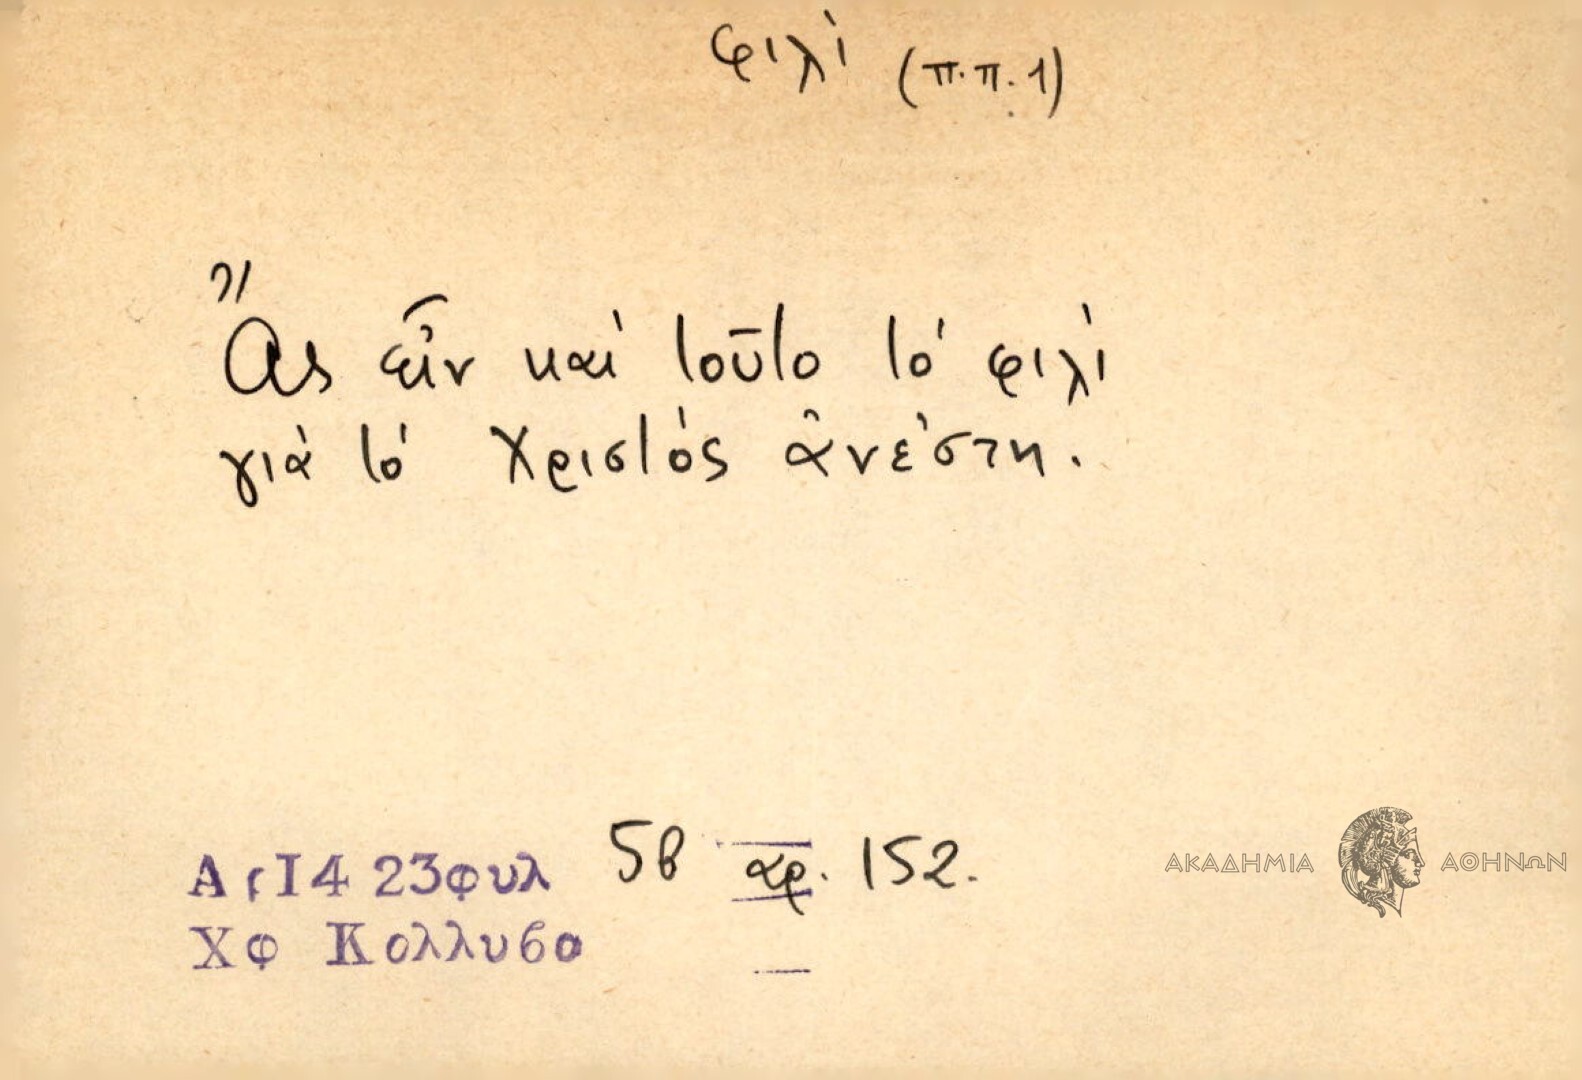 φιλὶ (π.π. 1)
Ἂς εἶν καὶ τοῦτο τὸ φιλὶ
γιὰ τὸ Χριστὸς ἀνέστη.
Αρ14 23φυλ 5β αρ. 152.
Χφ Κολλυβα
ΑΚΑΔΗΜΙΑ ΑΘΗΝΩΝ